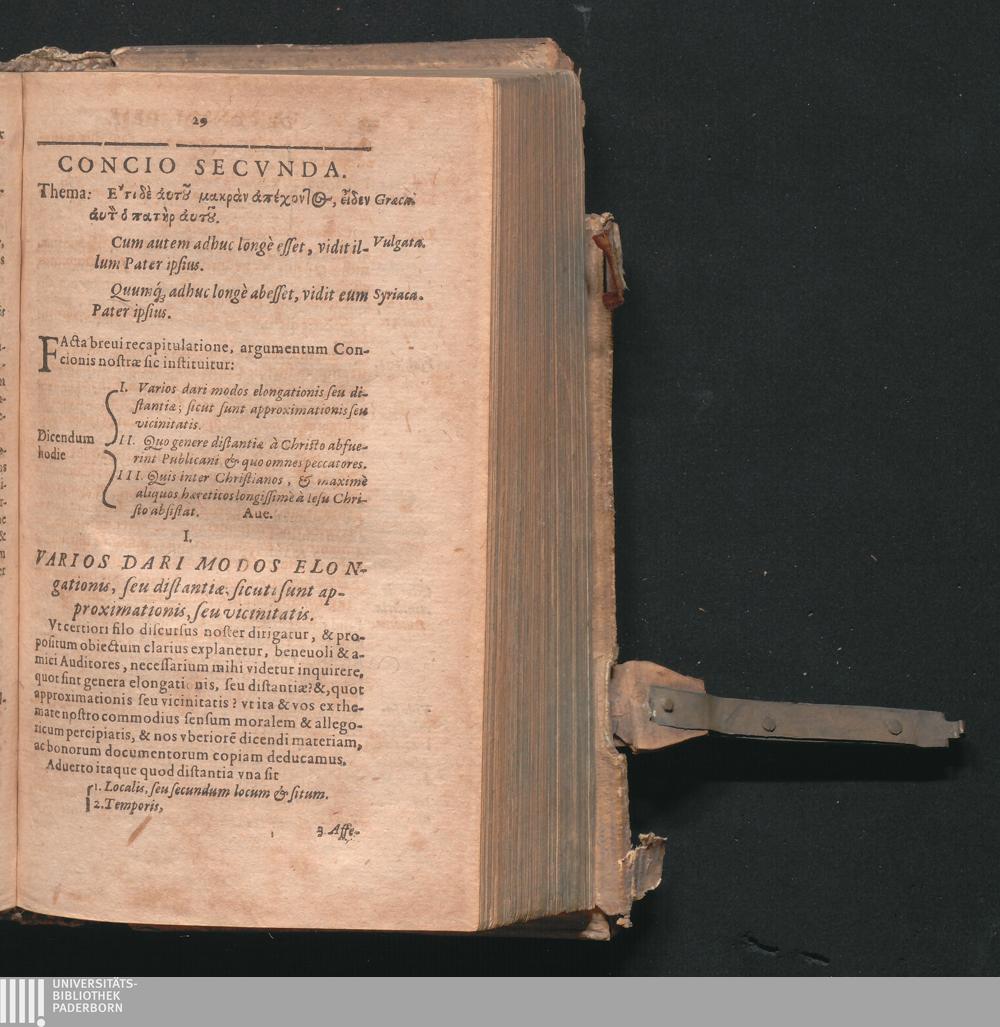 29
CONCIO SECVNDA.
Thema: Ε῎τι δὲ ἀυτοῦ μακρὰν ἀπέχοντος, εἶδεν Græca.
ἀυτὸν ὁ πατὴρ ἀυτοῦ.
Cum autem adhuc longè esset, vidit il- Vulgata.
lum Pater ipsius.
Quumq́; adhuc longè abesset, vidit eum Syriaca.
Pater ipsius.
FActa breui recapitulatione, argumentum Con-
cionis nostræ sic instituitur:
I. Varios dari modos elongationis seu di-
stantiæ; sicut sunt approximationis seu
vicinitatis.
Dicendum hodie
II. Quo genere distantiæ à Christo abfue-
rint Publicani & quo omnes peccatores.
III. Quis inter Christianos, & maximè
aliquos hæreticos longissimè à Iesu Chri-
sto absistat. Aue.
I.
VARIOS DARI MODOS ELON-
gationis, seu distantiæ, sicuti sunt ap-
proximationis, seu vicinitatis.
Vt certiori filo discursus noster dirigatur, & pro-
positum obiectum clarius explanetur, beneuoli & a-
mici Auditores, necessarium mihi videtur inquirere,
quot sint genera elongationis, seu distantiæ? &, quot
approximationis seu vicinitatis? vt ita & vos ex the-
mate nostro commodius sensum moralem & allego-
ricum percipiatis, & nos vberiorẽ dicendi materiam,
ac bonorum documentorum copiam deducamus.
Aduerto itaque quod distantia vna sit
1. Localis, seu secundum locum & situm.
2. Temporis,
3 Affe-
UNIVERSITÄTS-
BIBLIOTHEK
PADERBORN